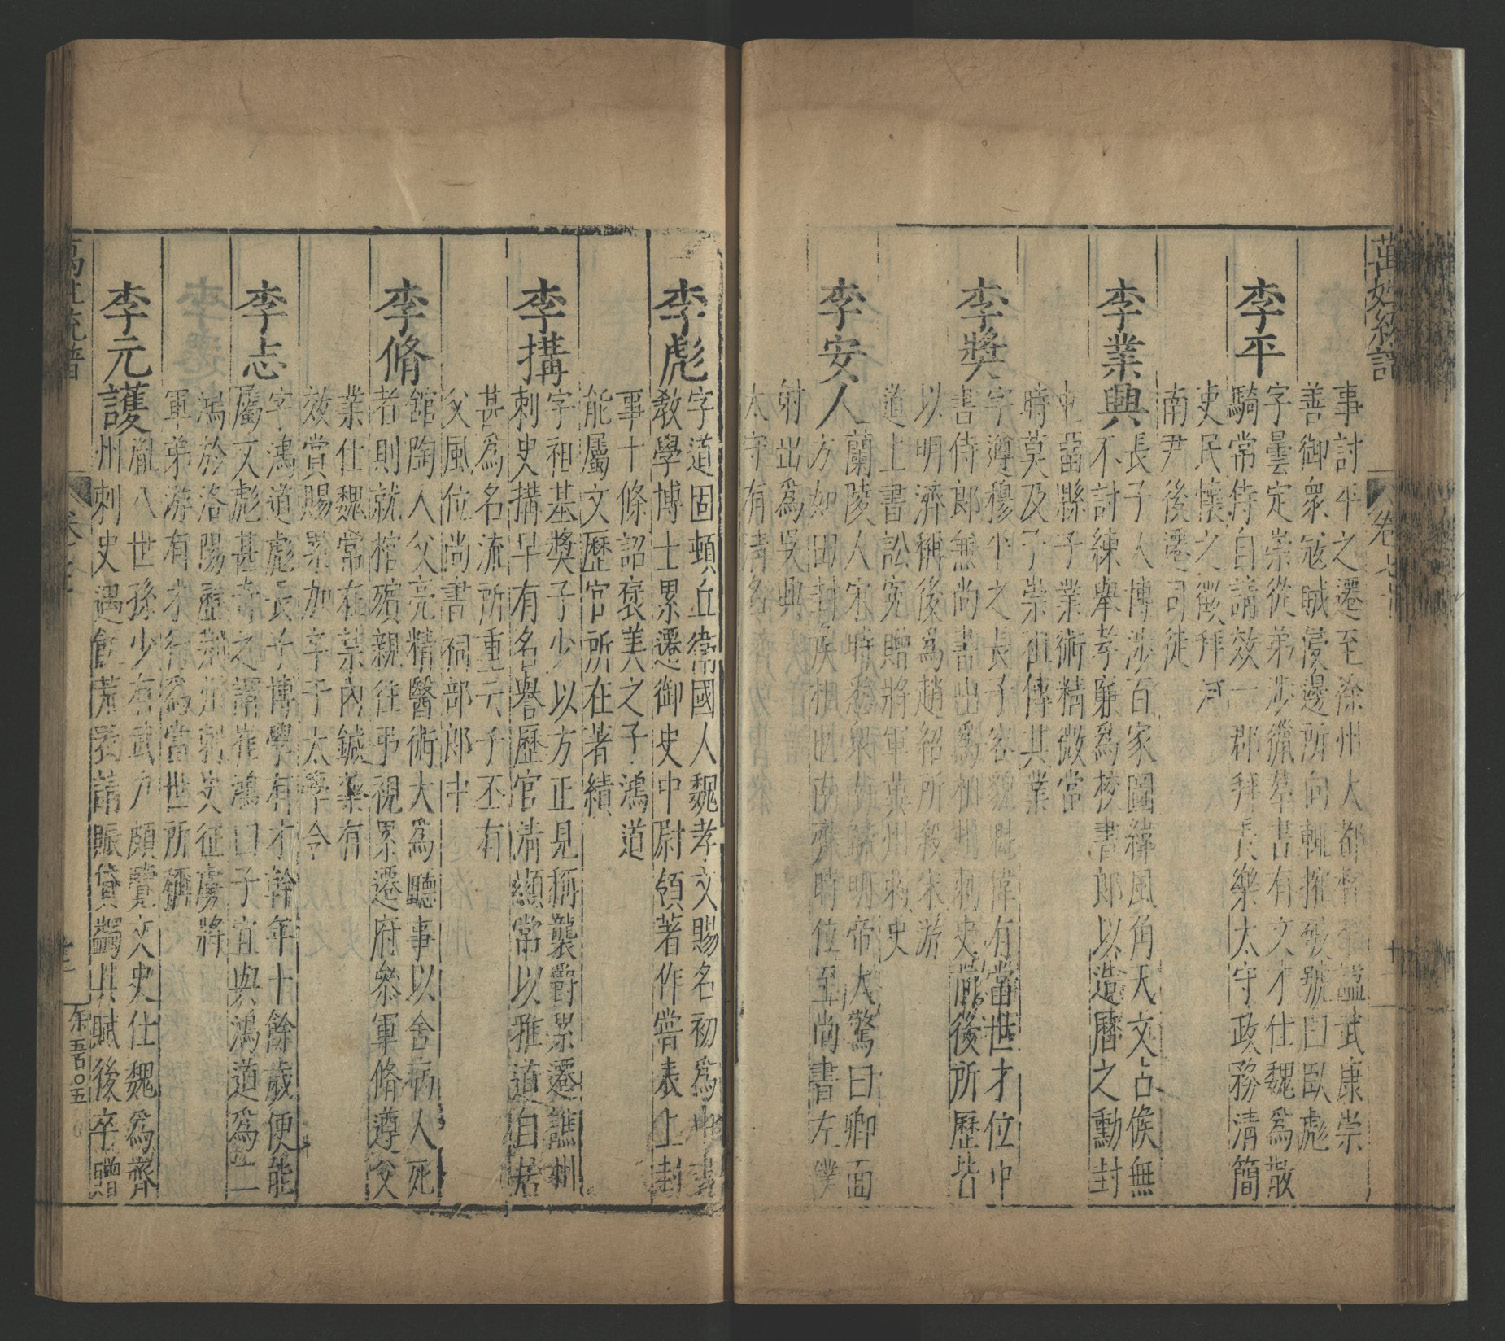 萬姓統譜
卷七十
事討平之遷至滁州大都督卒謚武康崇
善御衆寇賊侵邊所向輒摧破號曰臥彪
李平
字曇定崇從弟涉獵羣書有文才仕魏爲散
騎常侍自請效一郡拜長樂太守政務清簡
吏民懷之徵拜河
南尹後遷司徒
李業興
長子人博涉百家圖緯風角天文占候無
不討練舉孝廉爲校書郎以造曆之勳封
屯留縣子業術精微當
時莫及子崇祖傳其業
李獎
字遵穆平之長子容貌魁偉有當世才位中
書侍郎無尚書出爲相州刺史前後所歷皆
以明濟稱後爲趙紹所殺宋游
道上書訟寃贈將軍冀州刺史
李安人
蘭陵人宋時稔綱勞績明帝大驚曰卿面
方如田封侯相也南齊時位至尚書左僕
射出爲吳興
太守有清名
李彪
字道固頓丘衛國人魏孝文賜名初爲中書
教學博士累遷御史中尉領著作嘗表上封
事十條詔褒美之子鴻道
能屬文歷官所在著績
李搆
字祖基獎子少以方正見稱襲爵累遷譙州
刺史搆早有名譽歷官清顯常以雅道自居
甚爲名流所重云子丕有
父風位尚書祠部郎中
李脩
館陶人父亮精醫術大爲聽事以舍病人死
者則就棺殯親往弔視累遷府叅軍脩遵父
業仕魏常在禁內鍼藥有
效賞賜累加卒子太學令
李志
字鴻道彪長子博學有才幹年十餘歲便能
屬文彪甚奇之謂崔鴻曰子宜與鴻道爲二
鴻於洛陽歷荆州刺史征虜將
軍弟游有求行爲當世所稱
李元護
胤八世孫少有武力頗覽文史仕魏爲齊
州刺史遇飢荒表請賑貸蠲其賦後卒贈
萬姓統譜
東五百〇五